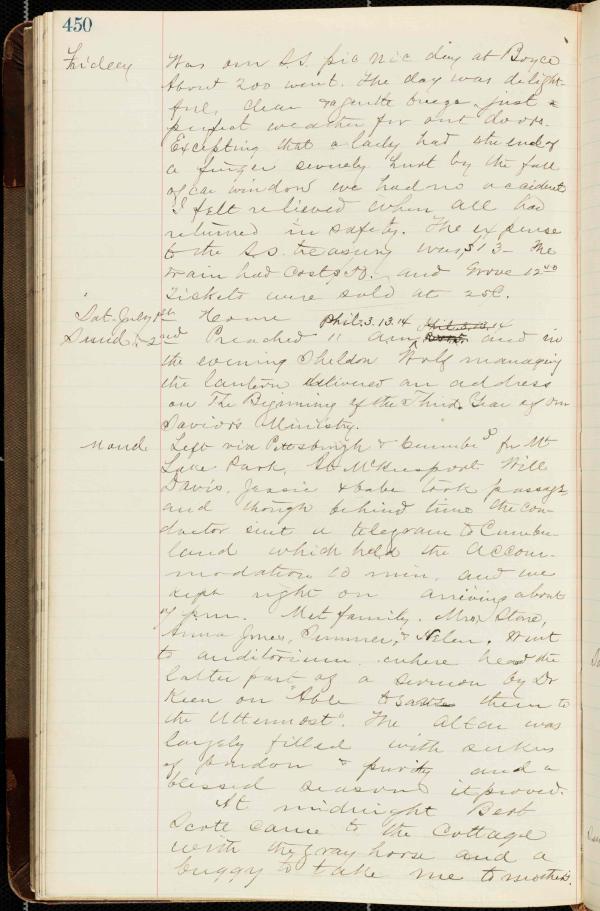 450
Friday Was our S.S. pic nic day at Boyce
About 200 went. The day was delight-
ful, clear & gentle breeze, just a
perfect weather for out doors.
Excepting that a lady had the end of
a finger severely hurt by the fall
of car window we had no accident
I felt relieved when all had
returned in safety. The expense
to the S.S. treasury was $13 - The
train had cost and Grove 12.00
Tickets were sold at 25c.
Sat. July 1st Home
Sund. 2nd Preached 11 am Phil. 3.13.14 and in
the evening Sheldon Wolf managing
the lantern delivered an address
on The Beginning of the Third Year of our
Saviors Ministry.
Mond. Left via Pittsburgh & Cumbd for Mt
Lake Park. At McKeesport Will
Davis, Jessie & babe took passage
and though behind time the con-
ductor sent a telegram to Cumber-
land which held the Accom-
modation 10 min. and we
kept right on arriving about
7 pm. Met family. Mrs. Stone,
Anna Jones, & Helen. Went
to auditorium where heard the
latter part of a sermon by Dr
Keen on "Able to save them to
the Uttermost". The Altar was
largely filled with seekers
of pardon & purity and a
blessed season it proved.
At midnight Bert
Scott came to the Cottage
with the gray horse and a
buggy to take me to mother's.